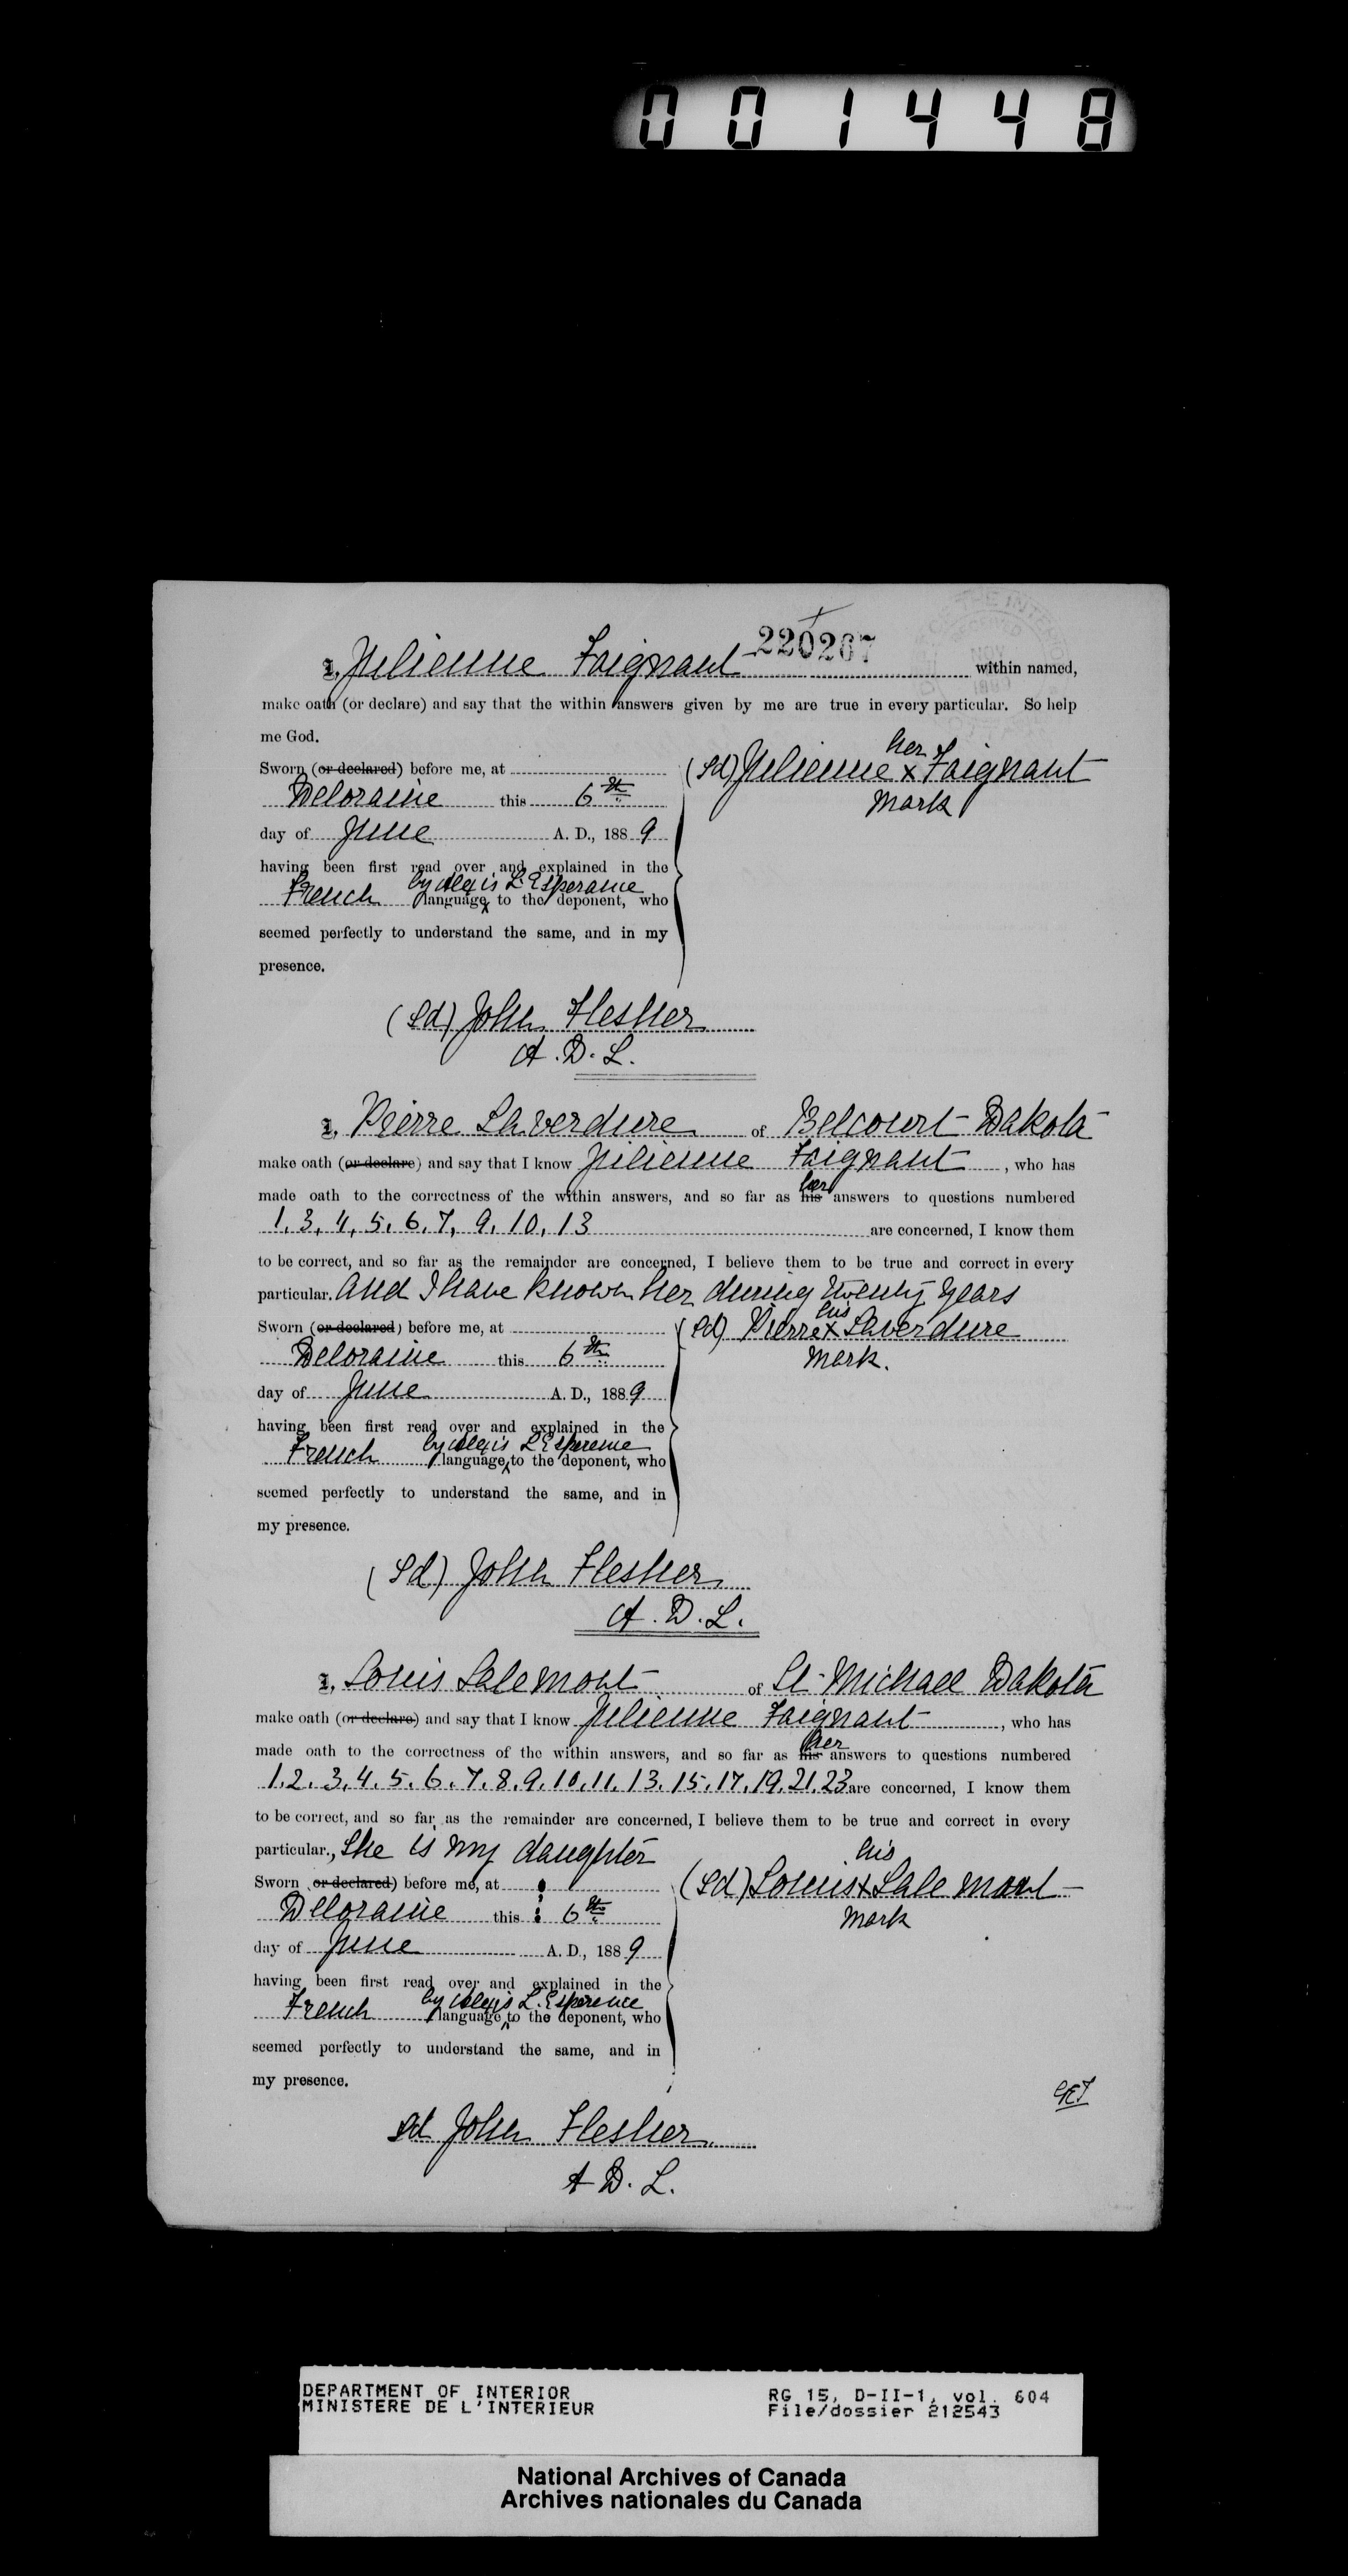 001448
220267
I, Julienne Faignant within named,
make oath (or declare) and say that the within answers given by me are true in every particular. So help
me God.
her
Sworn (or declared) before me, at (Sd) Julienne x Faignant
Deloraine this 6th mark
day of June A. D., 1889
having been first read over and explained in the
by Alexis L'Esperance
French language to the deponent, who
seemed perfectly to understand the same, and in my
presence.
(Sd) John Flesher
A. D. L.
I, Pierre Laverdure of Belcourt Dakota
make oath (or declare) and say that I know Julienne Faignant, who has
her
made oath to the correctness of the within answers, and so far as his answers to questions numbered
1, 3, 4, 5, 6, 7, 9, 10, 13 are concerned, I know them
to be correct, and so far as the remainder are concerned, I believe them to be true and correct in every
particular. and I have known her during twenty years
his
Sworn (or declared) before me, at (Sd) Pierre x Laverdure
Deloraine this 6th mark.
day of June A. D., 1889
having been first read over and explained in the
by Alexis L'Esperence
French language to the deponent, who
seemed perfectly to understand the same, and in
my presence.
(Sd) John Flesher
A. D. L.
I, Louis Lalemont of St Michael Dakota
make oath (or declare) and say that I know Julienne Faignant, who has
her
made oath to the correctness of the within answers, and so far as his answers to questions numbered
1, 2, 3, 4, 5, 6, 7, 8, 9, 10, 11, 13, 15, 17, 19, 21, 23 are concerned, I know them
to be correct, and so far as the remainder are concerned, I believe them to be true and correct in every
particular., She is my daughter
his
Sworn (or declared) before me, at (Sd) Louis x Lalemont
Deloraine this 6th mark
day of June A. D., 1889
having been first read over and explained in the
by Alexis L'Esperence
French language to the deponent, who
seemed perfectly to understand the same, and in
my presence.
Sd John Flesher
A D. L.
DEPARTMENT OF INTERIOR RG 15, D-II-1, vol. 604
MINISTERE DE L'INTERIEUR File/dossier 212543
National Archives of Canada
Archives nationales du Canada